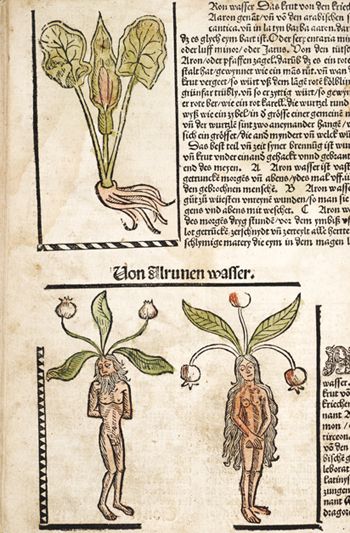 Ron wasser Das krut von den kriech
Aaron genāt/vñ vō den arabischen s
cantica. vñ in latyn barba aaron. dar
dz es glych eym bart ist. Oder ser/entaria mi
oder luff minor/oder Jarus. Von den tütsch
Aron/oder pfaffen zagel. darūb dz es ein rote
stalt hat/gewynnet wie ein mās rūt. vñ wan d
krut verget/so würt vß dem läge rote kölblin
grünfar trübly. vñ so er zyttig würt/so gewyn
er rot ber/wie ein rot karell. die wurtzel rund
wyß wie ein zybel/in d grösse einer gemeinē n
vñ der wurtzlē sint zwo aneynander hangē/
sich ein grösset/die and myndert vñ welck wü
Das best teil vñ zeit syner brennūg ist wu
vñ krut vnder einand gehackt vnnd gebrant
end des meyen. A Aron wasser ist vast
getrunckē morgēs vñ abens/ydes mal
den gebrochnen menschē. B Aron wasse
gūt zū wüesten vnreynē wunden/so man sie
gens vnd abens mit weschet. C Aron w
des morgēs dryg stunde vor dem ymbiß
lot getrūckē zerschnydt vñ zerteylt alle hertte
schlymige matery die eym in dem magen l
Von Alrunen wasser.
wasser
krut vō
kriechen
nant
mon /
tircon
vō den
bischē g
leborat
latinys
zungen
nant
drago